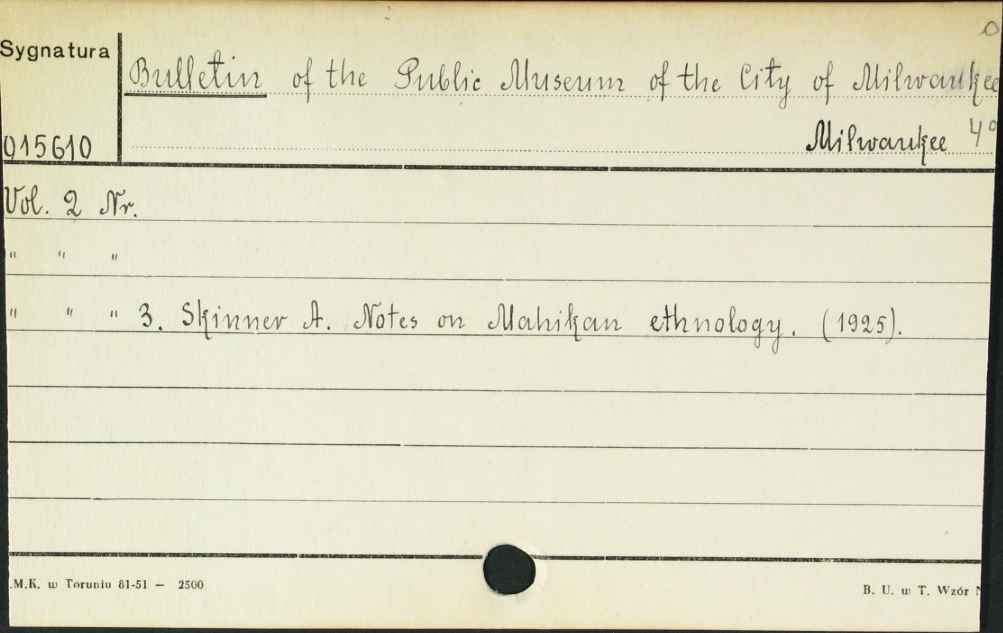 O
Sygnatura
Bulletin of the Public Museum of the City of Milwaukee
015610
Milwaukee 4°
Vol. 2 Nr.
" " "
" " " 3. Skinner A. Notes on Mahikan ethnology. (1925).
.M.K. w Toruniu 81-51 — 2500
B. U. w T. Wzór N